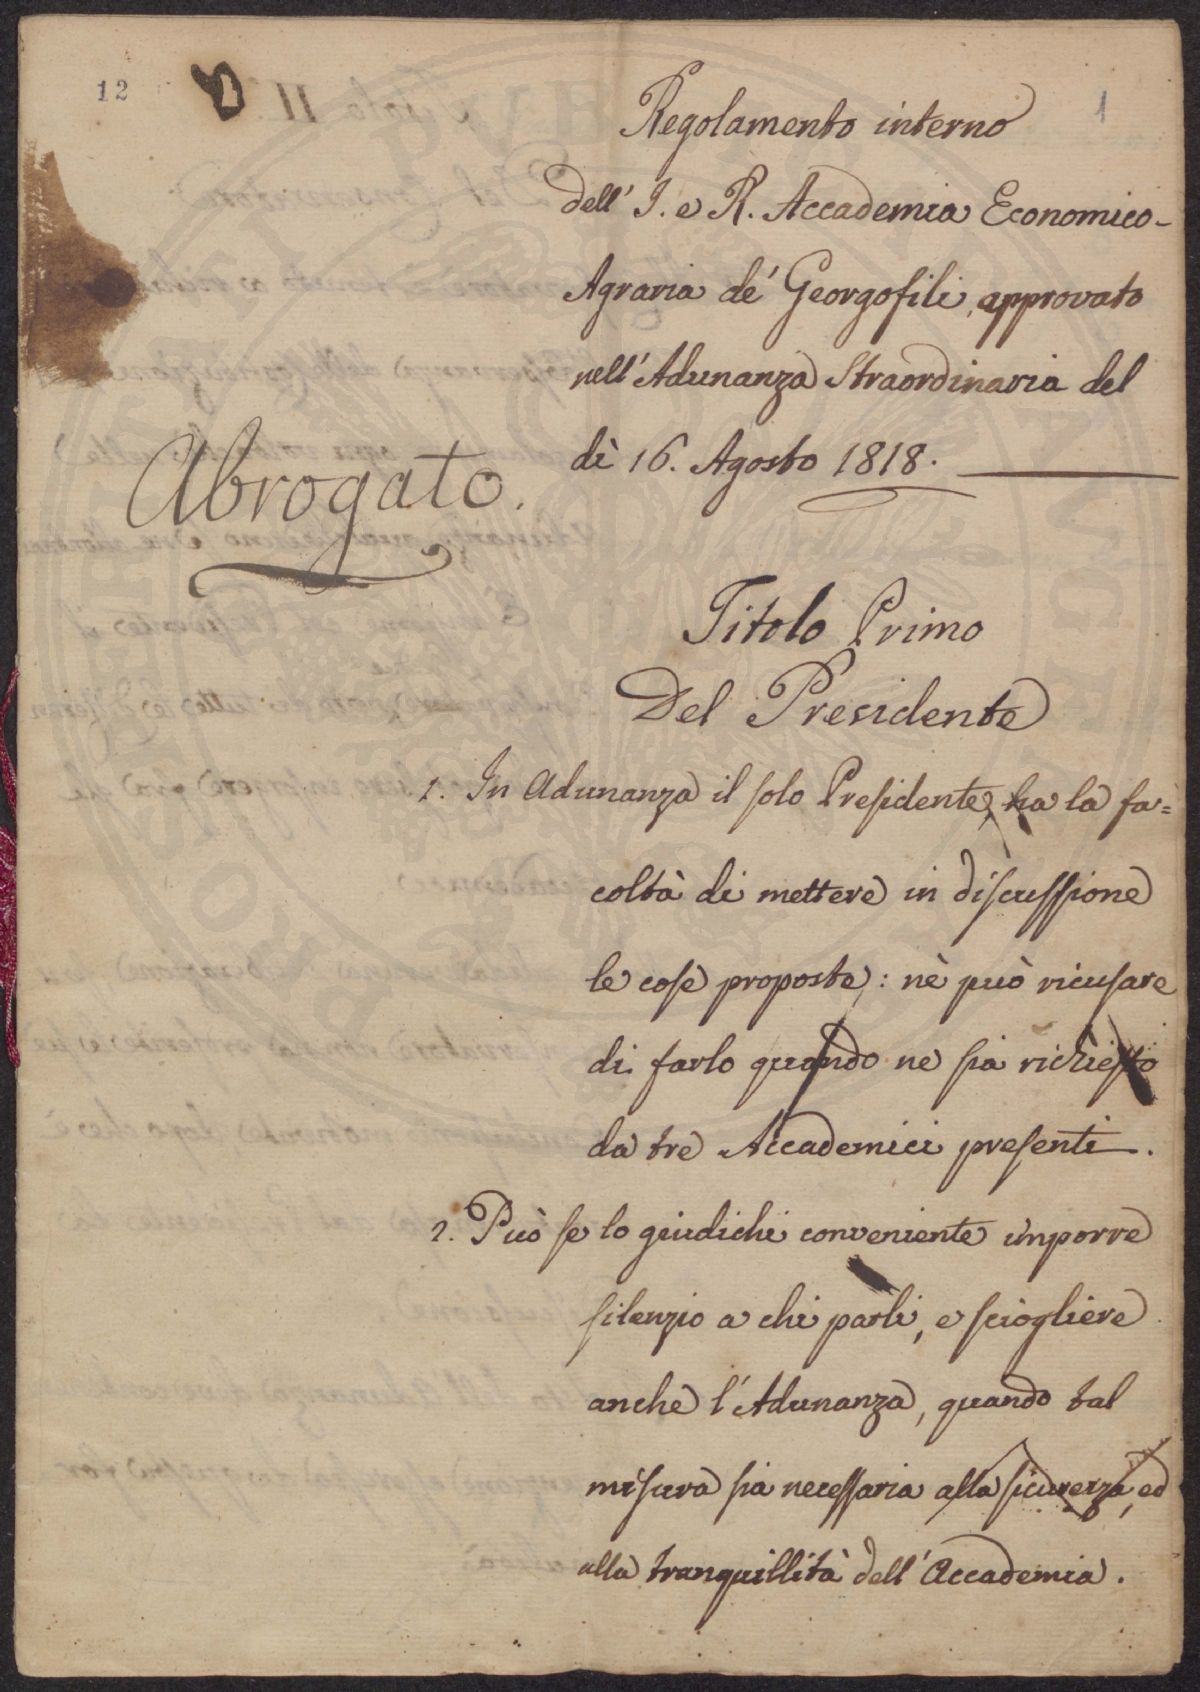 12
1
Regolamento interno
dell' I. e R. Accademia Economico-
Agraria de' Georgofili, approvato
nell' Adunanza Straordinaria del
dì 16. Agosto 1818.
Abrogato.
Titolo Primo
Del Presidente
1. In Adunanza il solo Presidente, ha la fa=
coltà di mettere in discussione
le cose proposte: nè può ricusare
di farlo quando ne sia richiesto
da tre Accademici presenti.
2. Può se lo giudichi conveniente imporre
silenzio a chi parli, e sciogliere
anche l'Adunanza, quando tal
misura sia necessaria alla sicurezza, ed
alla tranquillità dell' Accademia.